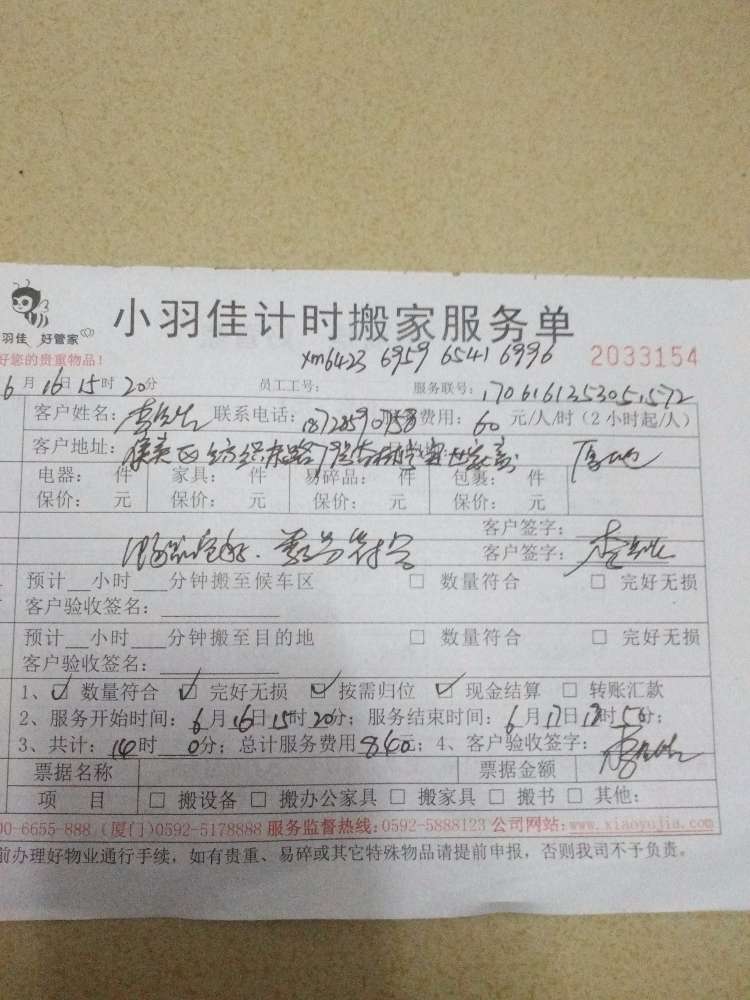 小羽佳计时搬家服务单
羽佳 好管家
好您的贵重物品!
xm6423 6959 6541 6996
2033154
6月16日15时20分 员工工号: 服务联号:
客户姓名: 李先生 联系电话: 费用: 60 元/人/时(2小时起/人)
客户地址:
电器: 件 家具: 件 易碎品: 件 包裹: 件
保价: 元 保价: 元 保价: 元 保价: 元
客户签字:
数量符合 客户签字: 李先生
预计___小时___分钟搬至候车区 □ 数量符合 □ 完好无损
客户验收签名:
预计___小时___分钟搬至目的地 □ 数量符合 □ 完好无损
客户验收签名:
1、☑ 数量符合 ☑ 完好无损 ☑ 按需归位 ☑ 现金结算 □ 转账汇款
2、服务开始时间: 6月16日15时20分; 服务结束时间: 6月17日 时50分;
3、共计: 14时 0分; 总计服务费用 840元; 4、客户验收签字: 李先生
票据名称 票据金额
项 目 □ 搬设备 □ 搬办公家具 □ 搬家具 □ 搬书 □ 其他:
00-6655-888 (厦门)0592-5178888 服务监督热线:0592-5888123 公司网站:www.xiaoyujia.com
前办理好物业通行手续,如有贵重、易碎或其它特殊物品请提前申报,否则我司不予负责。